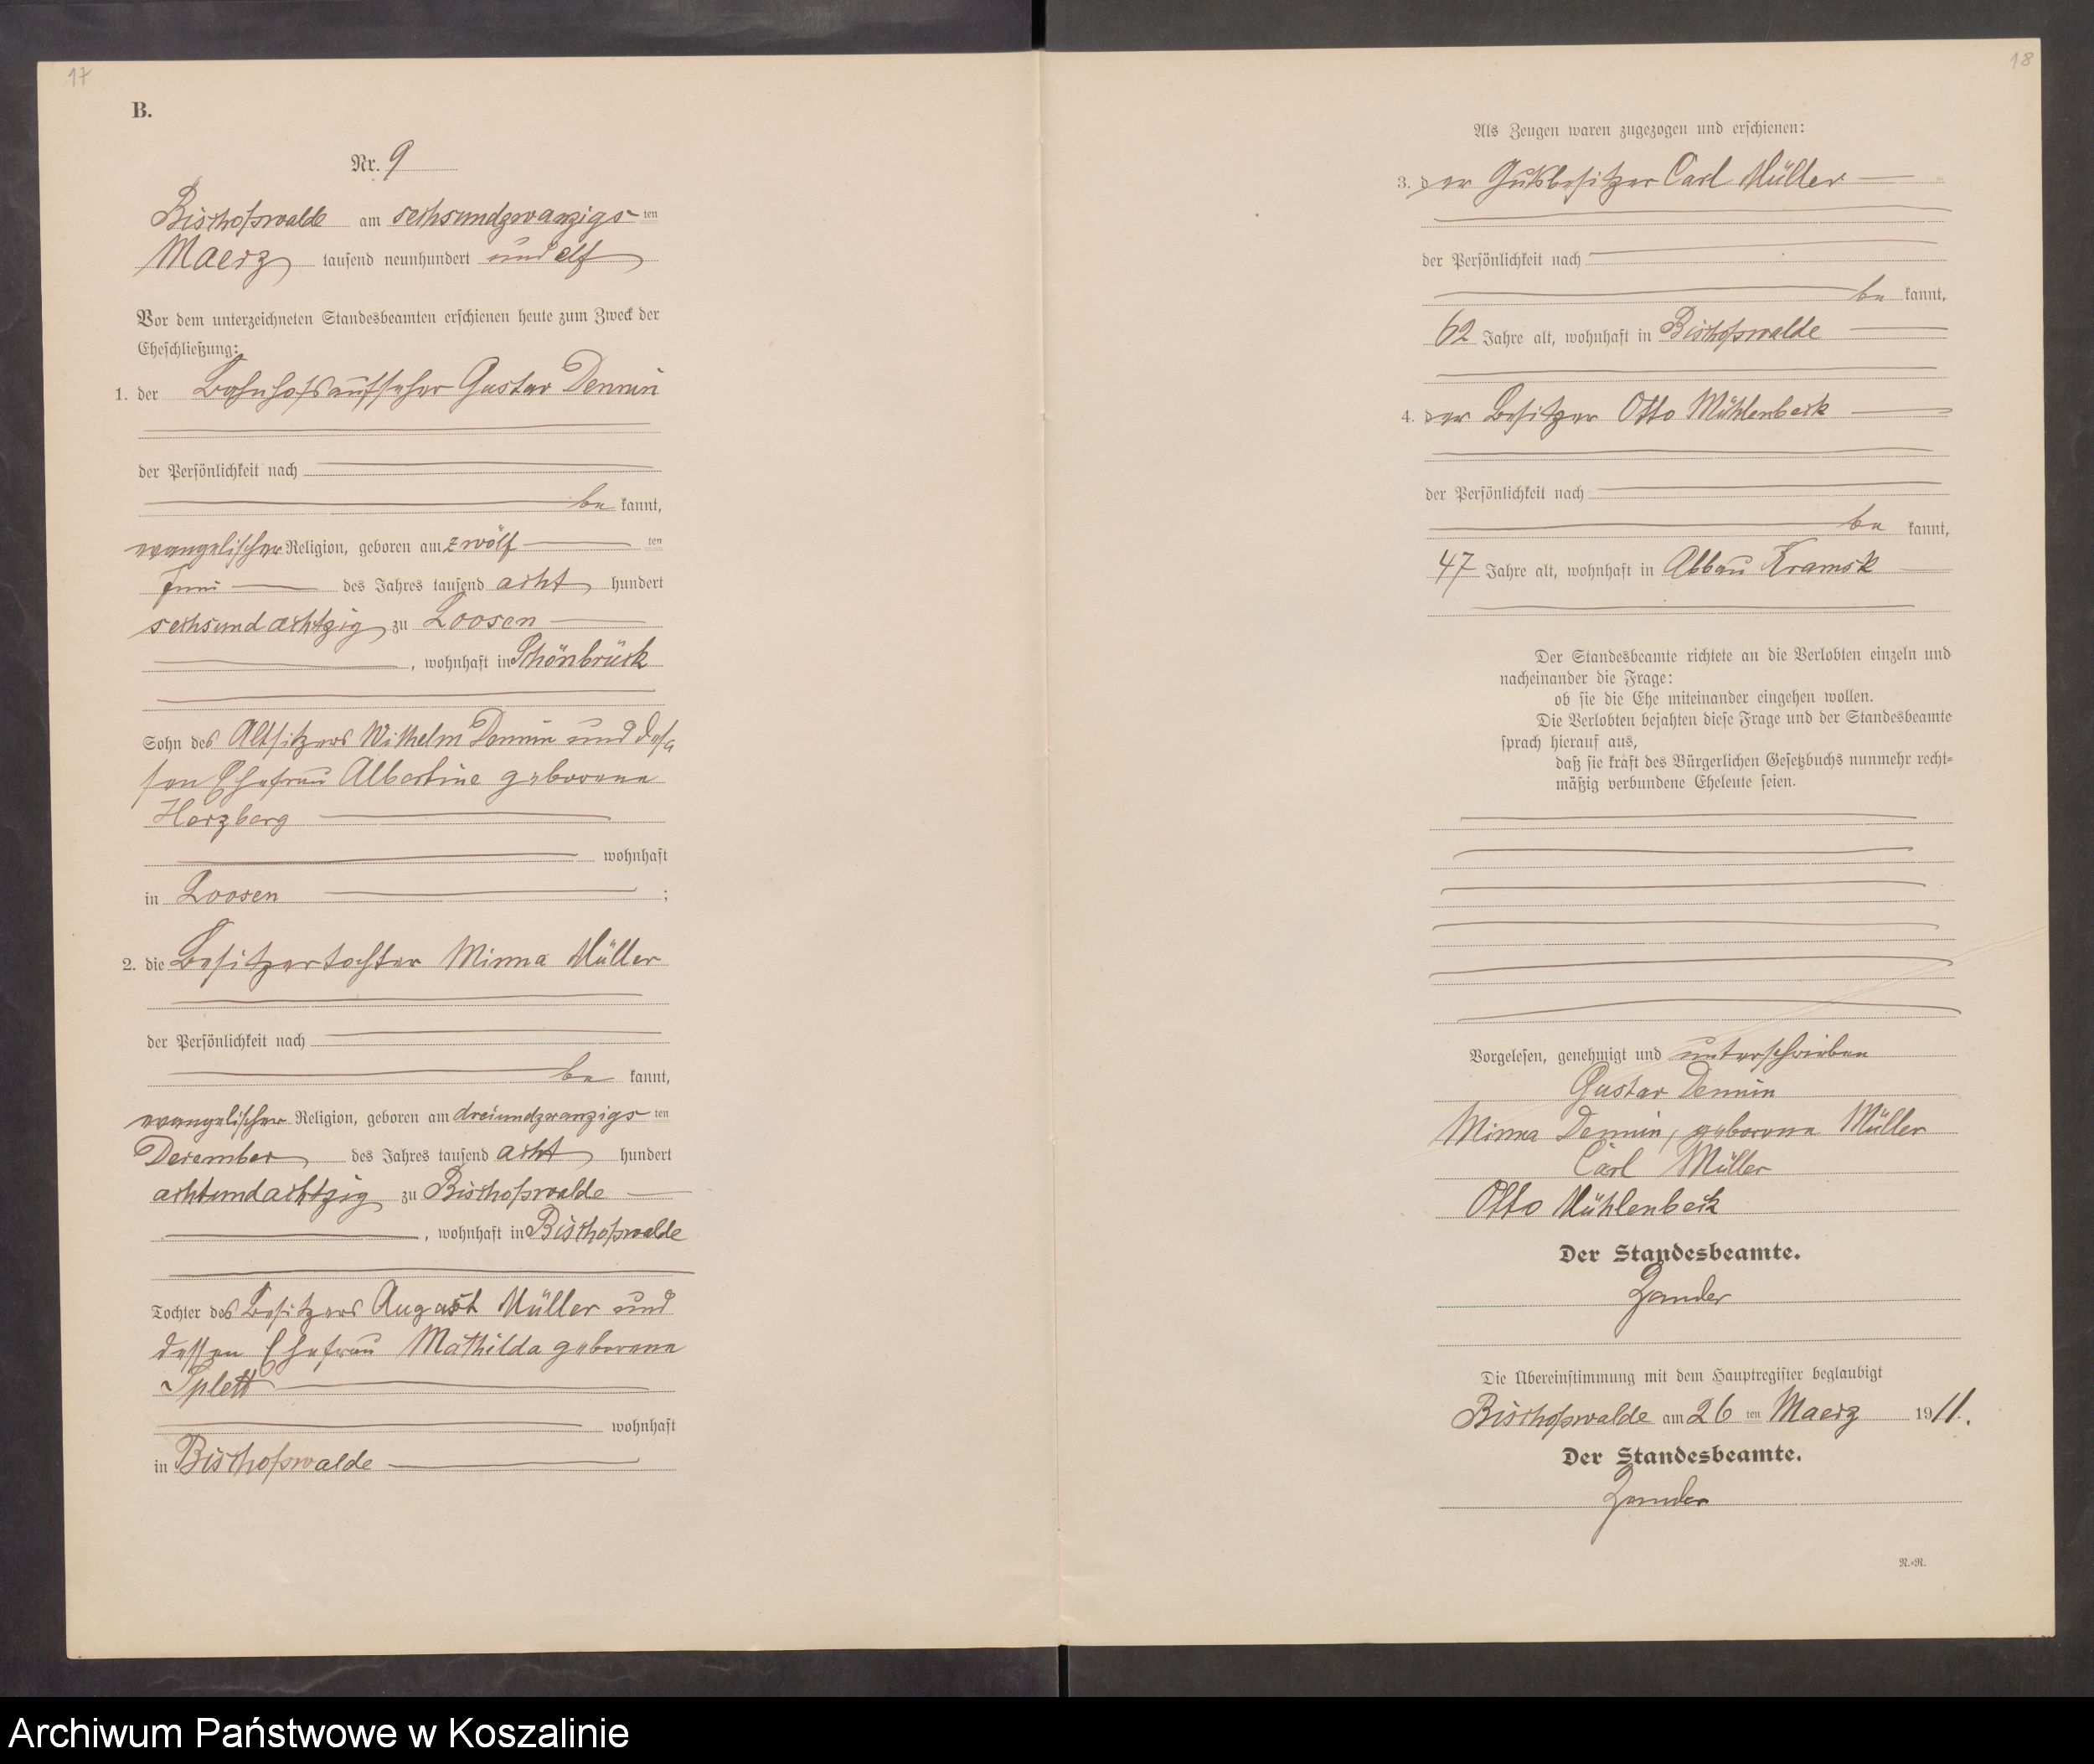 17
B.
Nr. 9
Bischofswalde am sechsundzwanzigs ten
Maerz tausend neunhundert und elf
Vor dem unterzeichneten Standesbeamten erschienen heute zum Zweck der
Eheschließung:
1. der Bahnhofsaufseher Gustav Demin
der Persönlichkeit nach
be kannt,
evangelischer Religion, geboren am zwölf ten
Juni des Jahres tausend acht hundert
sechsundachtzig zu Loosen
, wohnhaft in Schönbrück
Sohn des Altsitzers Wilhelm Demin und des=
sen Ehefrau Albertine geborene
Herzberg
wohnhaft
in Loosen ;
2. die Besitzertochter Minna Müller
der Persönlichkeit nach
be kannt,
evangelischer Religion, geboren am dreiundzwanzigs ten
Dezember des Jahres tausend acht hundert
achtundachtzig zu Bischofswalde
, wohnhaft in Bischofswalde
Tochter des Besitzers August Müller und
dessen Ehefrau Mathilda geborene
Splett
wohnhaft
in Bischofswalde
18
Als Zeugen waren zugezogen und erschienen:
3. der Gutsbesitzer Carl Müller
der Persönlichkeit nach
be kannt,
62 Jahre alt, wohnhaft in Bischofswalde
4. der Besitzer Otto Mühlenbeck
der Persönlichkeit nach
be kannt,
47 Jahre alt, wohnhaft in Abbau Kramsk
Der Standesbeamte richtete an die Verlobten einzeln und
nacheinander die Frage:
ob sie die Ehe miteinander eingehen wollen.
Die Verlobten bejahten diese Frage und der Standesbeamte
sprach hierauf aus,
daß sie kraft des Bürgerlichen Gesetzbuchs nunmehr recht=
mäßig verbundene Eheleute seien.
Vorgelesen, genehmigt und unterschrieben
Gustav Demin
Minna Demin, geborene Müller
Carl Müller
Otto Mühlenbeck
Der Standesbeamte.
Zander
Die Übereinstimmung mit dem Hauptregister beglaubigt
Bischofswalde am 26 ten Maerz 1911.
Der Standesbeamte.
Zander
R.=R.
Archiwum Państwowe w Koszalinie